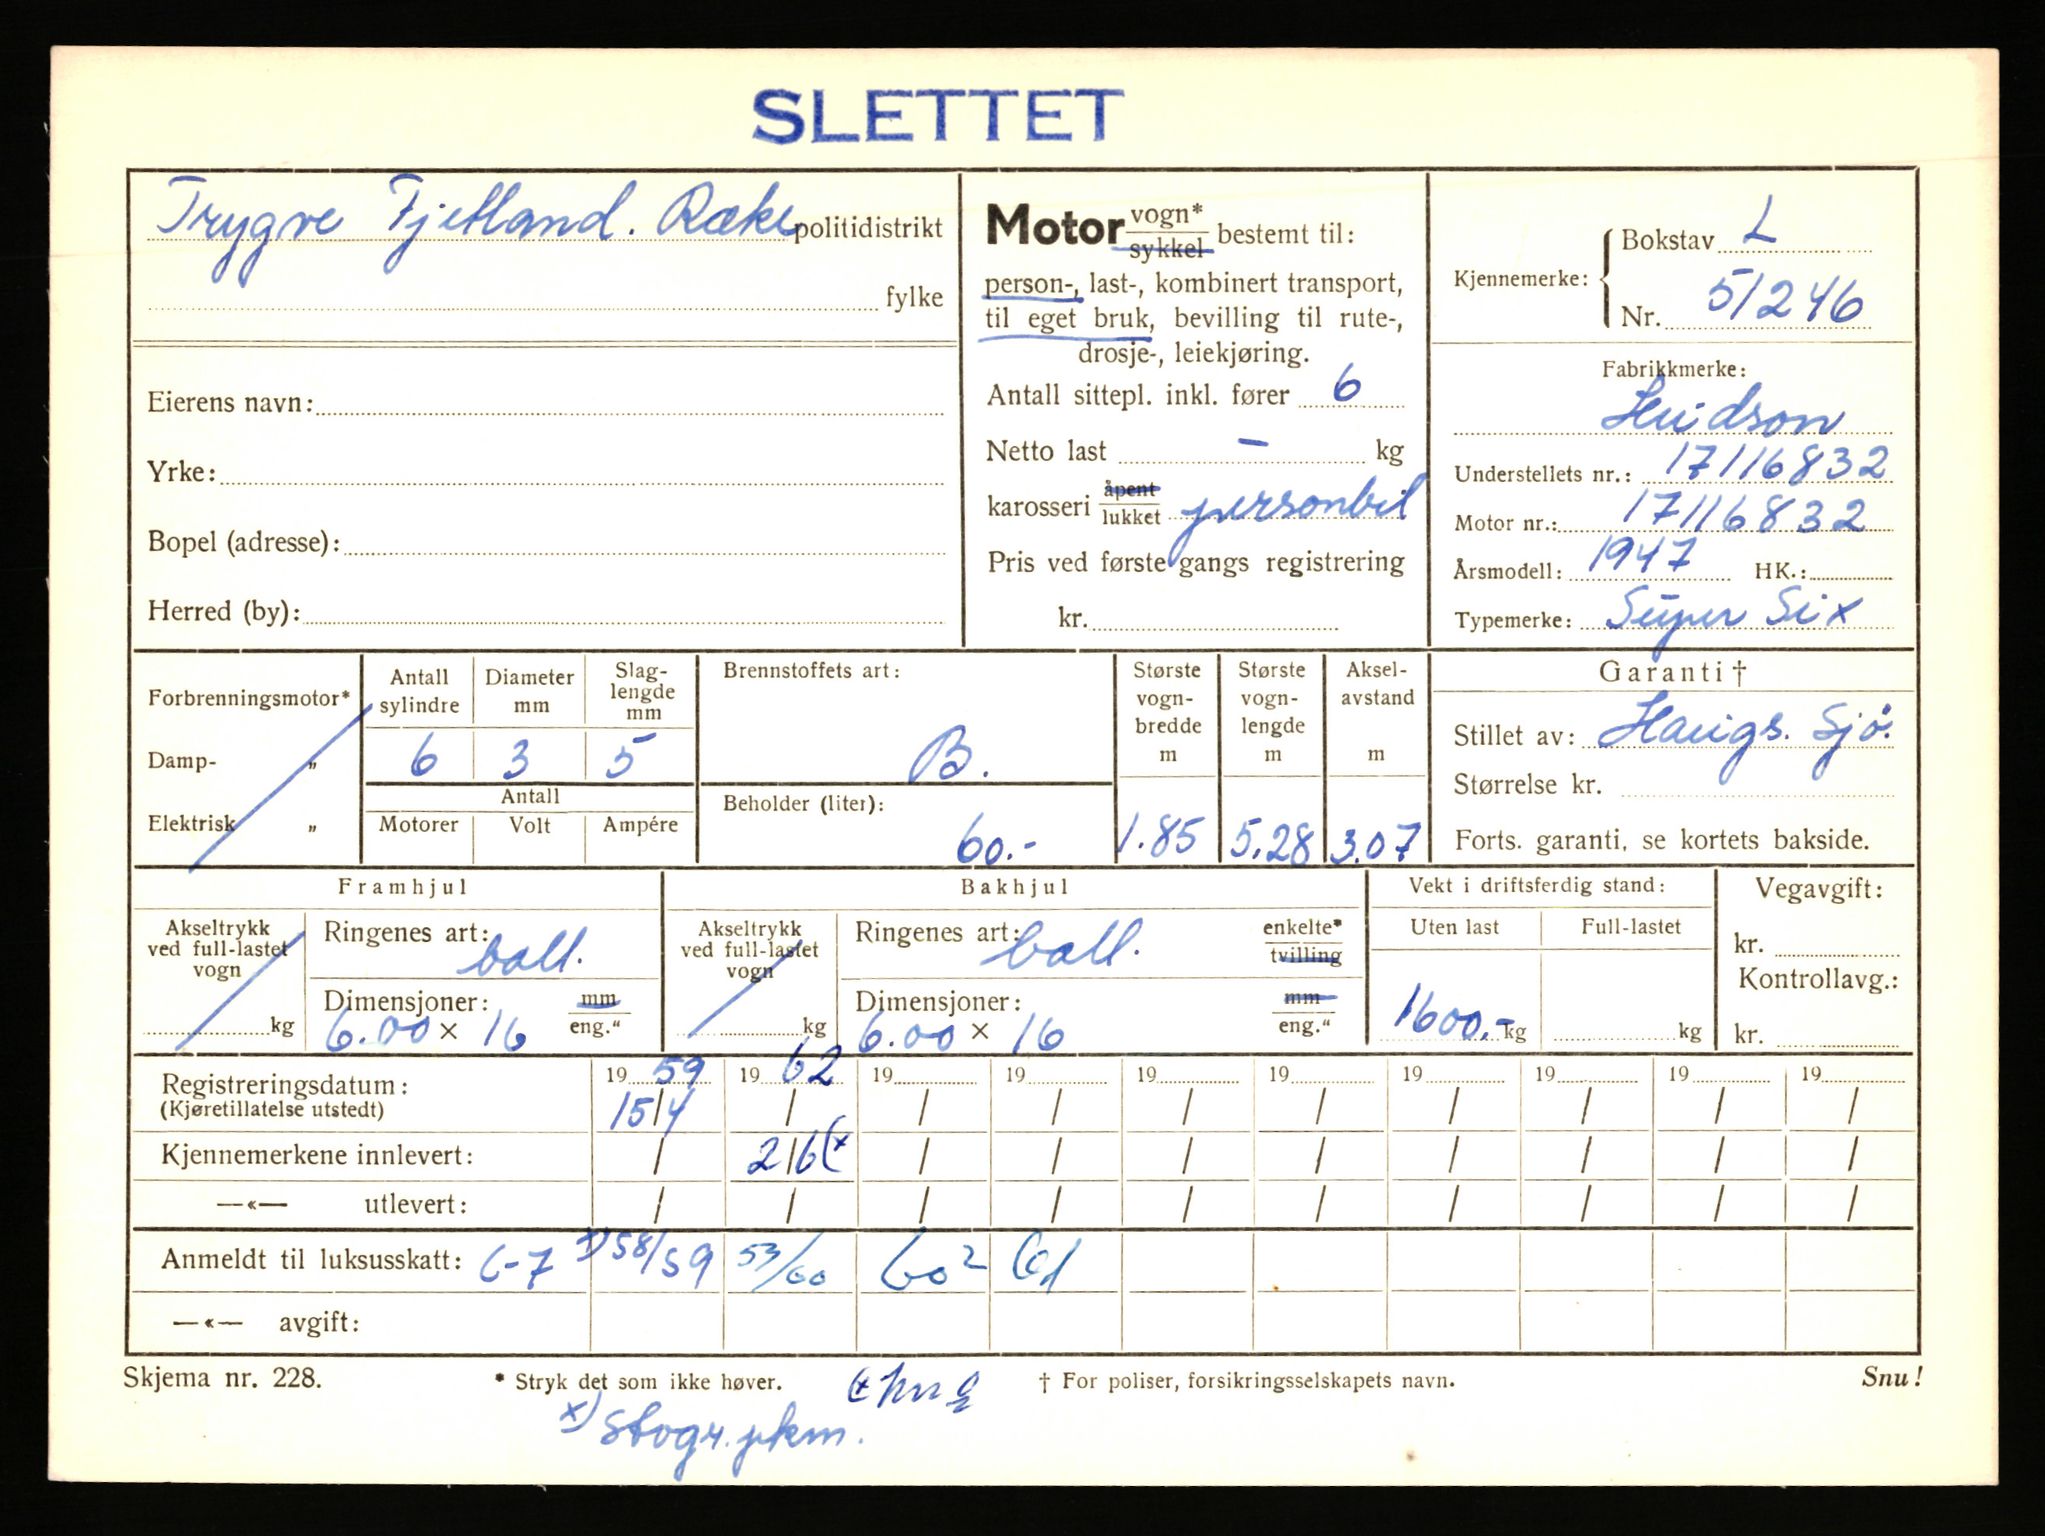 SLETTET
Trygve Fjetland. Ræke politidistrikt
fylke
Eierens navn:
Yrke:
Bopel (adresse):
Herred (by):
Motor vogn* / sykkel bestemt til:
person-, last-, kombinert transport,
til eget bruk, bevilling til rute-,
drosje-, leiekjøring.
Antall sittepl. inkl. fører 6
Netto last – kg
karosseri åpent / lukket personbil
Pris ved første gangs registrering
kr.
Kjennemerke: { Bokstav L
Nr. 51246
Fabrikkmerke:
Hudson
Understellets nr.: 17116832
Motor nr.: 17116832
Årsmodell: 1947 HK.:
Typemerke: Super Six
Forbrenningsmotor*
Damp- „
Elektrisk „
Antall sylindre 6
Diameter mm 3
Slag-lengde mm 5
Antall
Motorer Volt Ampére
Brennstoffets art:
B.
Beholder (liter):
60.-
Største vogn-bredde m 1.85
Største vogn-lengde m 5.28
Aksel-avstand m 3.07
Garanti †
Stillet av: Haugs. Sjø.
Størrelse kr.
Forts. garanti, se kortets bakside.
Framhjul
Akseltrykk ved full-lastet vogn
kg
Ringenes art: ball.
Dimensjoner: mm / eng.“
6.00 × 16
Bakhjul
Akseltrykk ved full-lastet vogn
kg
Ringenes art: ball. enkelte* / tvilling
Dimensjoner: mm / eng.“
6.00 × 16
Vekt i driftsferdig stand:
Uten last Full-lastet
1600.- kg kg
Vegavgift:
kr.
Kontrollavg.:
kr.
Registreringsdatum: 19 59 19 62 19 19 19 19 19 19 19 19
(Kjøretillatelse utstedt) 15/4 / / / / / / / / /
Kjennemerkene innlevert: / 2/6 (* / / / / / / / /
—«— utlevert: / / / / / / / / / /
Anmeldt til luksusskatt: 6-7 x) 58/59 53/60 60² 61
—«— avgift:
Skjema nr. 228. * Stryk det som ikke høver. † For poliser, forsikringsselskapets navn. Snu!
x)